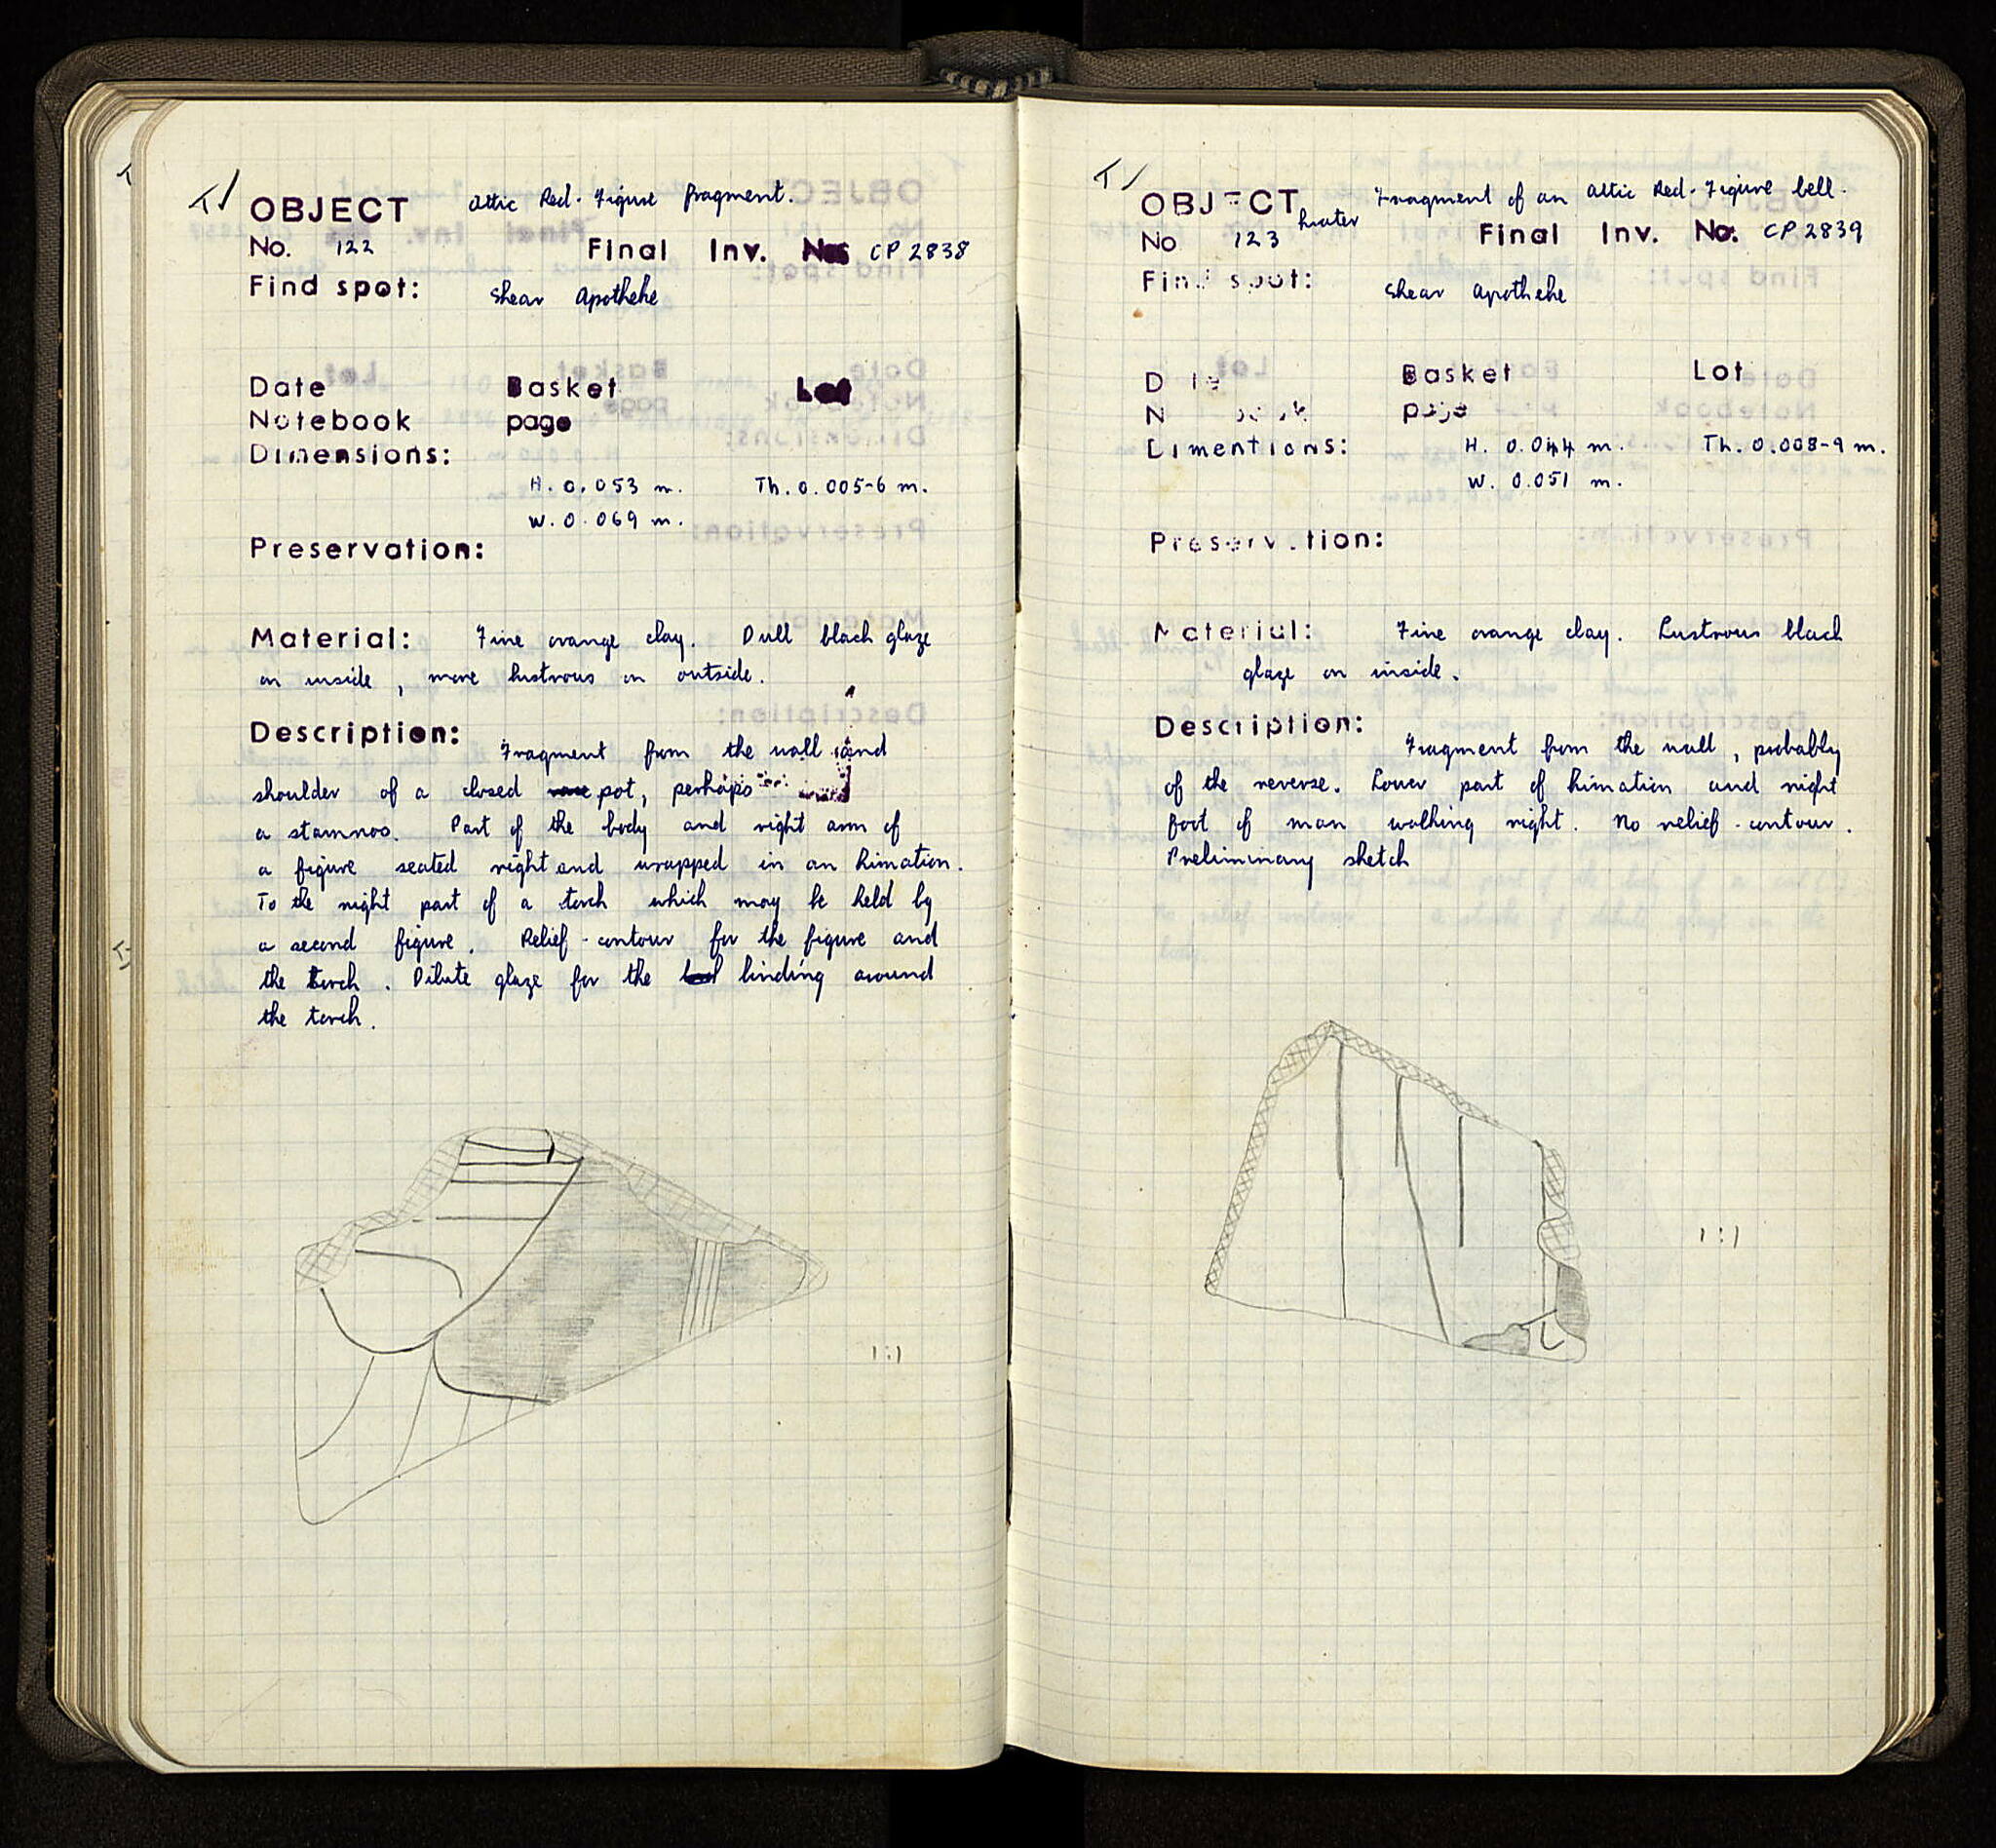 T/
OBJECT Attic Red-Figure fragment.
No. 122 Final Inv. No. CP 2838
Find spot: Shear Apotheke
Date Basket Lot
Notebook page
Dimensions:
H. 0.053 m. Th. 0.005-6 m.
W. 0.069 m.
Preservation:
Material: Fine orange clay. Dull black glaze
on inside, more lustrous on outside.
Description: Fragment from the wall and
shoulder of a closed pot, perhaps
a stamnos. Part of the body and right arm of
a figure seated right and wrapped in an himation.
To the right part of a torch which may be held by
a second figure. Relief-contour for the figure and
the torch. Dilute glaze for the binding around
the torch.
1:1
T/
OBJECT Fragment of an Attic Red-Figure bell-
krater
No 123 Final Inv. No. CP 2839
Find spot: Shear Apotheke
Date Basket Lot
Notebook page
Dimentions: H. 0.044 m. Th. 0.008-9 m.
W. 0.051 m.
Preservation:
Material: Fine orange clay. Lustrous black
glaze on inside.
Description: Fragment from the wall, probably
of the reverse. Lower part of himation and right
foot of man walking right. No relief-contour.
Preliminary sketch
1:1